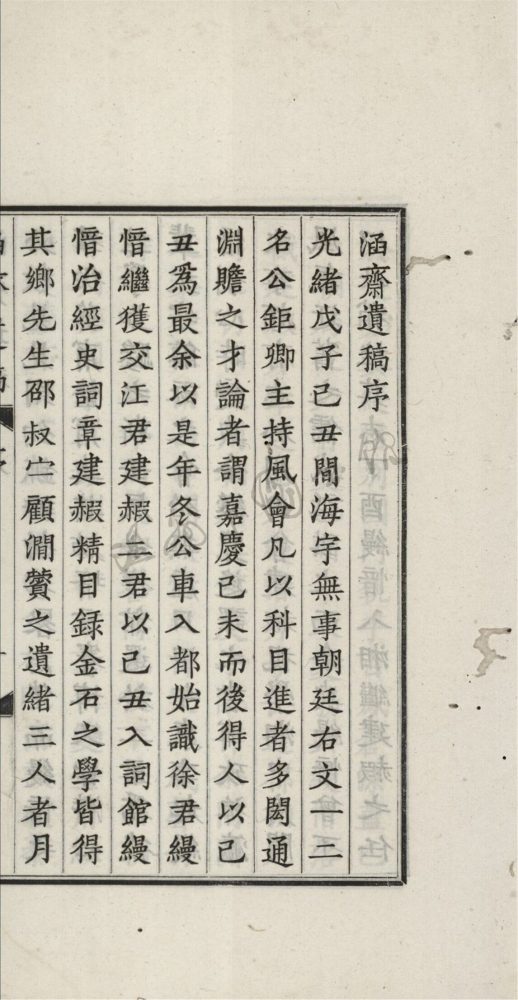 涵齋遺稿序
光緒戊子己丑間海宇無事朝廷右文一二
名公鉅卿主持風會凡以科目進者多閎通
淵贍之才論者謂嘉慶己未而後得人以己
丑爲最余以是年冬公車入都始識徐君縵
愔繼獲交江君建赮二君以己丑入詞館縵
愔冶經史詞章建赮精目録金石之學皆得
其鄉先生邵叔宀顧澗薲之遺緒三人者月